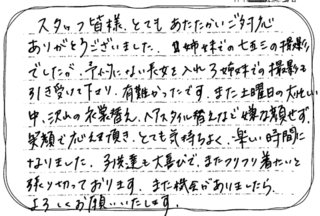 スタッフ皆様、とてもあたたかいご対応
ありがとうございました。2姉妹での七五三の撮影
でしたが、予定にない長女を入れ3姉妹での撮影も
引き受けて下り、有難かったです。また土曜日の大忙しい
中、沢山の衣装替え、ヘアスタイル替えなど嫌な顔せず、
笑顔で応えて頂き、とても気持ちよく、楽しい時間に
なりました。子供達も大喜びで、またフリフリ着たいと
張り切っております。また機会がありましたら、
よろしくお願いいたします。